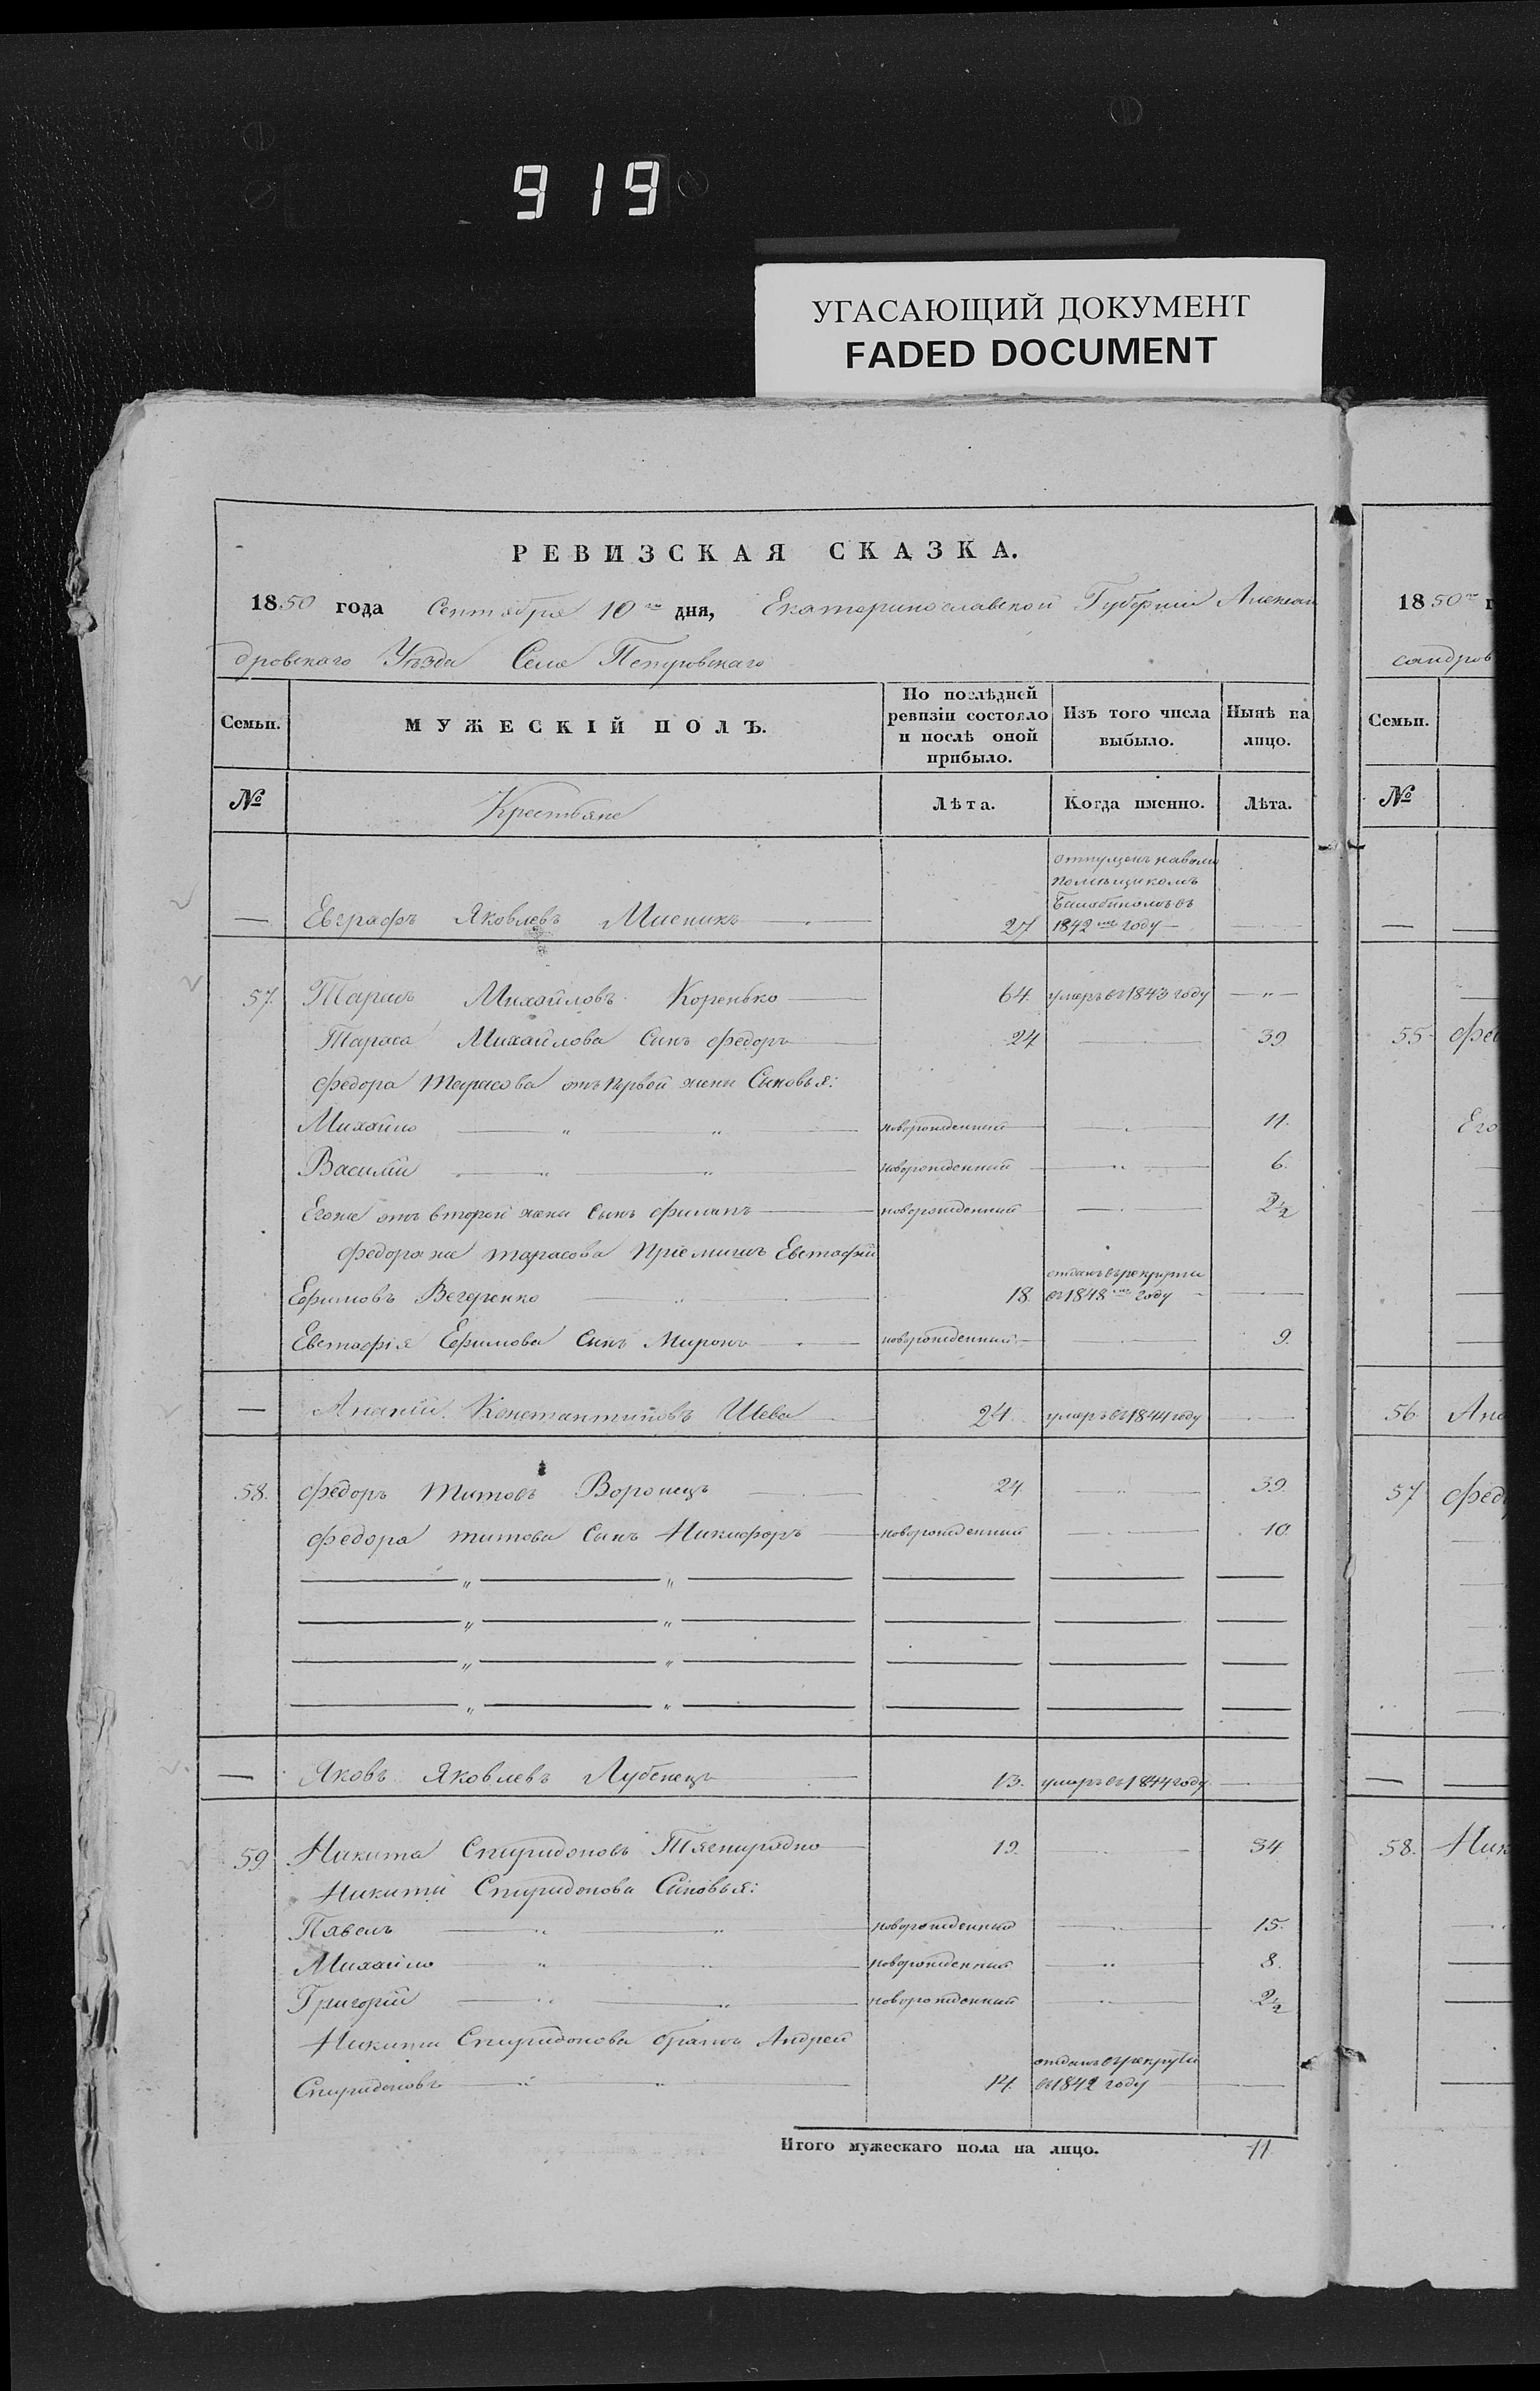 919
УГАСАЮЩИЙ ДОКУМЕНТ
FADED DOCUMENT
РЕВИЗСКАЯ СКАЗКА.
1850 года Сентября 10го дня, Екатеринославской Губерніи Алексан
дровскаго Уѣзда Села Петровскаго
Семьи. МУЖЕСКІЙ ПОЛЪ. По послѣдней ревизіи состояло и послѣ оной прибыло. Изъ того числа выбыло. Нынѣ на лицо.
№ Крестьяне Лѣта. Когда именно. Лѣта.
отпущенъ наволю
помѣщикомъ
въ
— Евграфъ Яковлевъ Мисникъ 27 1842мъ году
57. Тарасъ Михайловъ Коренько 64. умеръ въ 1843 году — " —
Тараса Михайлова Сынъ Федоръ 24 39.
Федора Тарасова отъ первой жены Сыновья:
Михайло " " новорожденный 11.
Василій " " новорожденный 6.
Егоже отъ второй жены Сынъ Филипъ новорожденный 2½
Федора же Тарасова пріемышъ Евстафій
отданъ въ рекруты
Ефимовъ Вегеренко " 18. въ 1848мъ году
Евстафія Ефимова Сынъ Миронъ новорожденный 9.
— Ананій Константиновъ Шева 24. умеръ въ 1844 году
58. Федоръ Титовъ Воронецъ 24 39.
Федора Титова Сынъ Никифоръ новорожденный 10.
" "
" "
" "
" "
— Яковъ Яковлевъ Лубенецъ 13. умеръ въ 1844 году
59 Никита Спиридоновъ 19. 34
Никиты Спиридонова Сыновья:
Павелъ " " новорожденный 15.
Михайло " " новорожденный 8.
Григорій " " новорожденный 2½
Никиты Спиридонова братъ Андрей
отданъ въ рекруты
Спиридоновъ " " 14. въ 1842 году
Итого мужескаго пола на лицо. 11
1850го г
сандров
Семьи.
№
55 Фед
Его
56 Ана
57 Фед
58. Ник